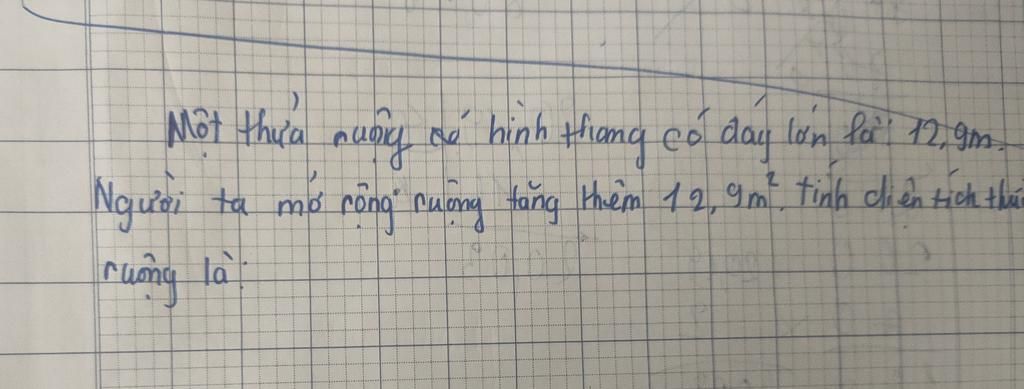 Một thửa ruộng có hình thang có đáy lớn là: 12,9m.
Người ta mở rộng ruộng tăng thêm 12,9m². tính diện tích thửa
ruộng là: